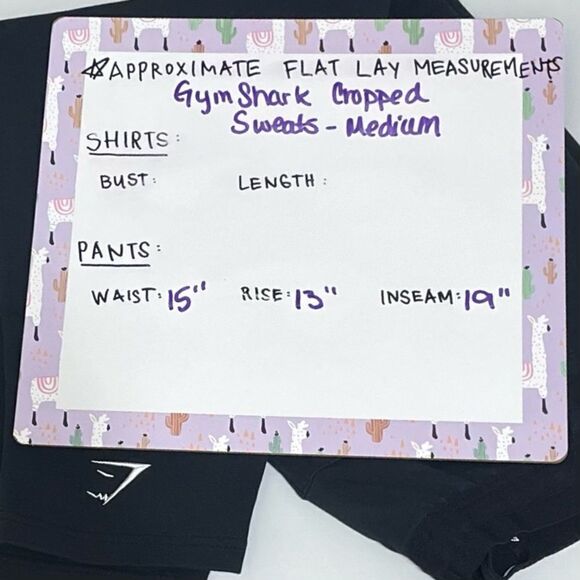 ☆APPROXIMATE FLAT LAY MEASUREMENTS
GymShark Cropped
Sweats - Medium
SHIRTS:
BUST: LENGTH:
PANTS:
WAIST: 15" RISE: 13" INSEAM: 19"